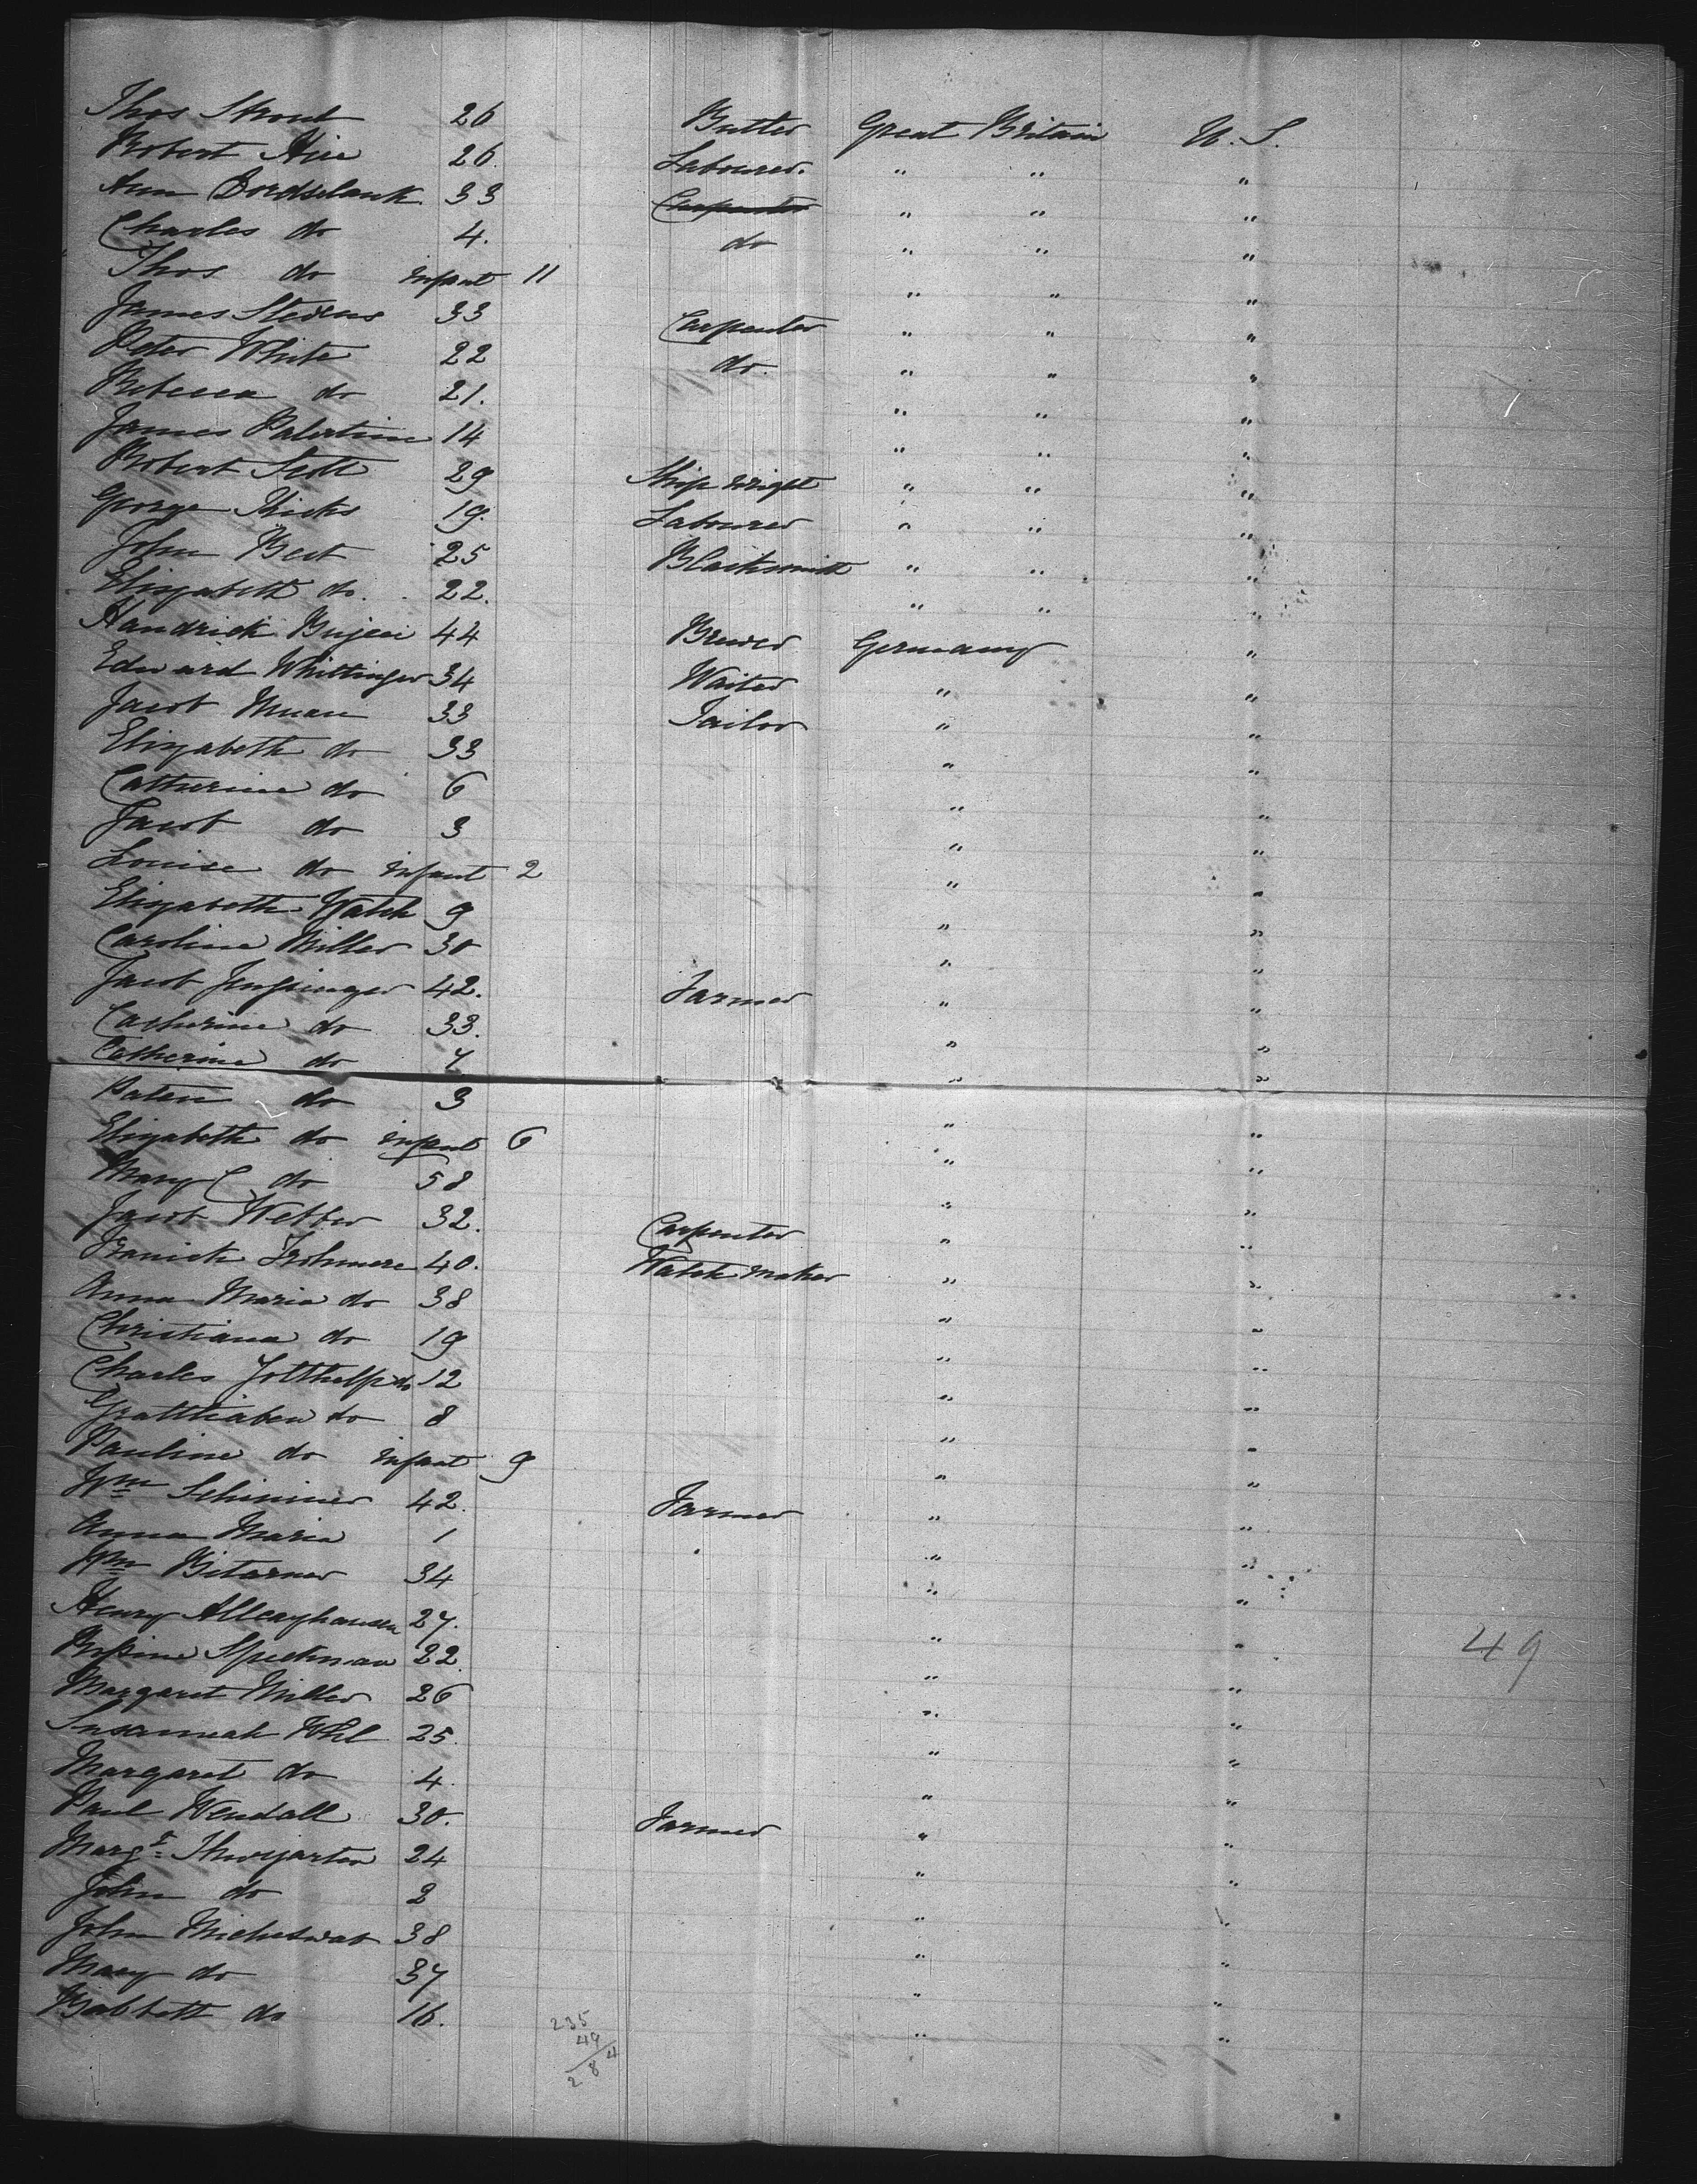 Thos Stroud 26 Butler Great Britain U.S.
Robert Aire 26. Labourer. " " "
Ann 33 Carpenter " " "
Charles do 4. do " " "
Thos do infant 11 " " "
James Stevens 33 Carpenter " " "
Peter White 22 do. " " "
Rebecca do 21. " " "
James Palertine 14 " " "
Robert Scott 29 Ship wright " " "
George Hicks 19. Labourer " " "
John Best 25 Blacksmith " " "
Elizabeth do. 22. " " "
Handrick 44 Brewer Germany "
Edward Whittinger 34 Waiter " "
Jacob Muan 33 Tailor " "
Elizabeth do 33 " "
Catherine do 6 " "
Jacob do 3 " "
Louise do infant 2 " "
Elizabeth Watch 9 " "
Caroline Miller 30 " "
Jacob 42. Farmer " "
Catherine do 33. " "
Catherine do 7 " "
do 3 " "
Elizabeth do infant 6 " "
Mary C do 58 " "
Jacob Webber 32. Carpenter " "
40. Watch maker " "
Anna Maria do 38 " "
Christiana do 19 " "
Charles do 12 " "
do 8 " "
Pauline do infant 9 " "
Wm Schinner 42. Farmer " "
Anna Maria 1 " "
Wm 34 " "
Henry 27. " "
Rosine Speckman 22. " " 49
Margaret Miller 26 " "
Susannah 25. " "
Margaret do 4. " "
Paul Wendall 30. Farmer " "
Margt 24 " "
John do 2 " "
John 38 " "
Mary do 37 " "
Babbett do 16. " "
235
49
284